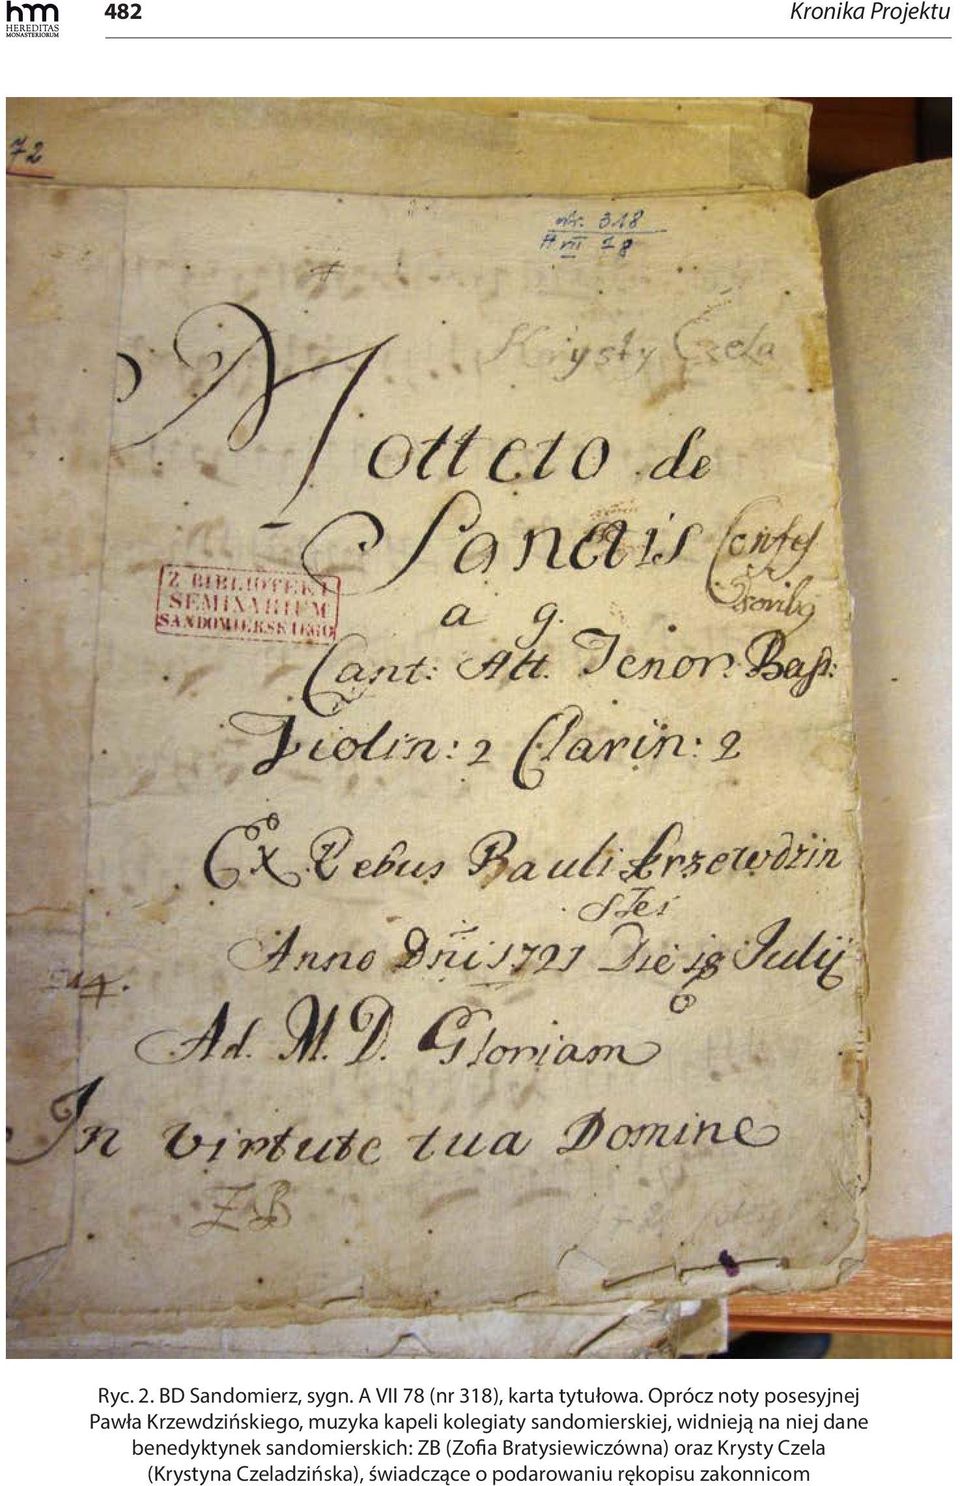 hm
HEREDITAS
MONASTERIORUM
482
Kronika Projektu
72
nr. 318
A VII 78
Krysty Czela
Motteto de
Sanctis Confes
soribq
a 9.
Cant: Alt. Tenor: Bass:
Violin: 2 Clarin: 2
Ex Rebus Pauli Krzewdzin
skei
Anno Dni 1721 Die 18 Julij
14.
Ad. M. D. Gloriam
In virtute tua Domine
ZB
Z BIBLIOTEKI
SEMINARIUM
SANDOMIERSKIEGO
Ryc. 2. BD Sandomierz, sygn. A VII 78 (nr 318), karta tytułowa. Oprócz noty posesyjnej
Pawła Krzewdzińskiego, muzyka kapeli kolegiaty sandomierskiej, widnieją na niej dane
benedyktynek sandomierskich: ZB (Zofia Bratysiewiczówna) oraz Krysty Czela
(Krystyna Czeladzińska), świadczące o podarowaniu rękopisu zakonnicom